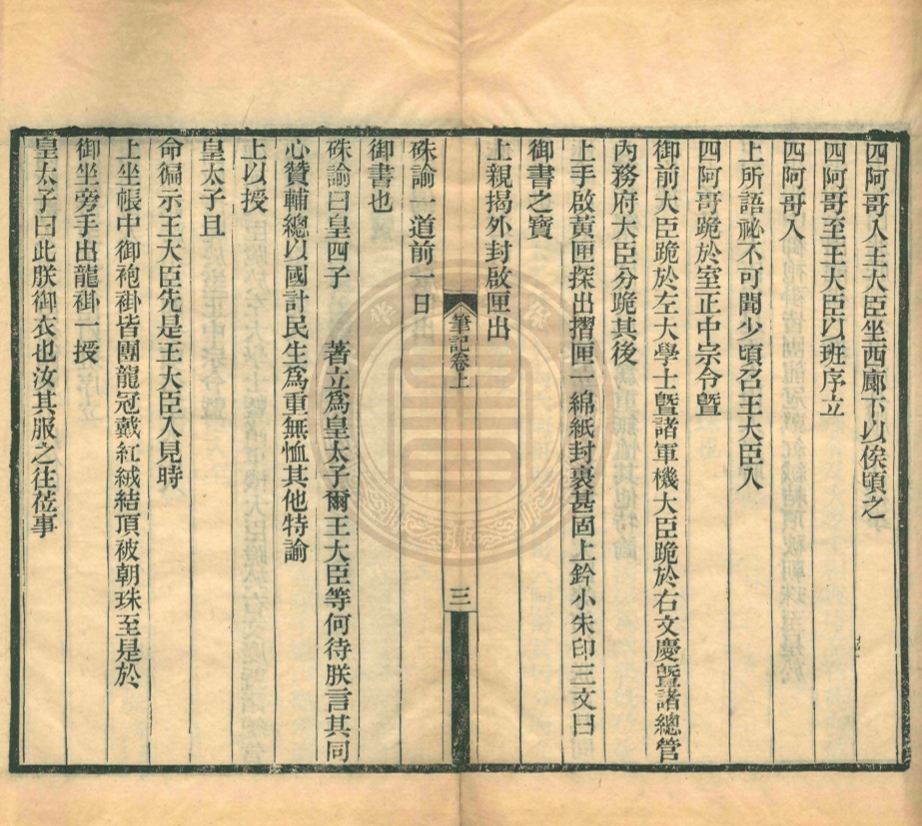 四阿哥人王大臣坐西廊下以俟頃之
四阿哥至王大臣以班序立
四阿哥入
上所語祕不可聞少頃召王大臣入
四阿哥跪於室正中宗令曁
御前大臣跪於左大學士曁諸軍機大臣跪於右文慶曁諸總管
內務府大臣分跪其後
上手啟黃匣探出摺匣一綿紙封裹甚固上鈐小朱印三文曰
御書之寶
上親揭外封啟匣出
硃諭一道前一日
御書也
硃諭曰皇四子 著立爲皇太子爾王大臣等何待朕言其同
心贊輔總以國計民生爲重無恤其他特諭
上以授
皇太子且
命徧示王大臣先是王大臣入見時
上坐帳中御袍褂皆團龍冠戴紅絨結頂被朝珠至是於
御坐旁手出龍褂一授
皇太子曰此朕御衣也汝其服之往莅事
筆記卷上
三